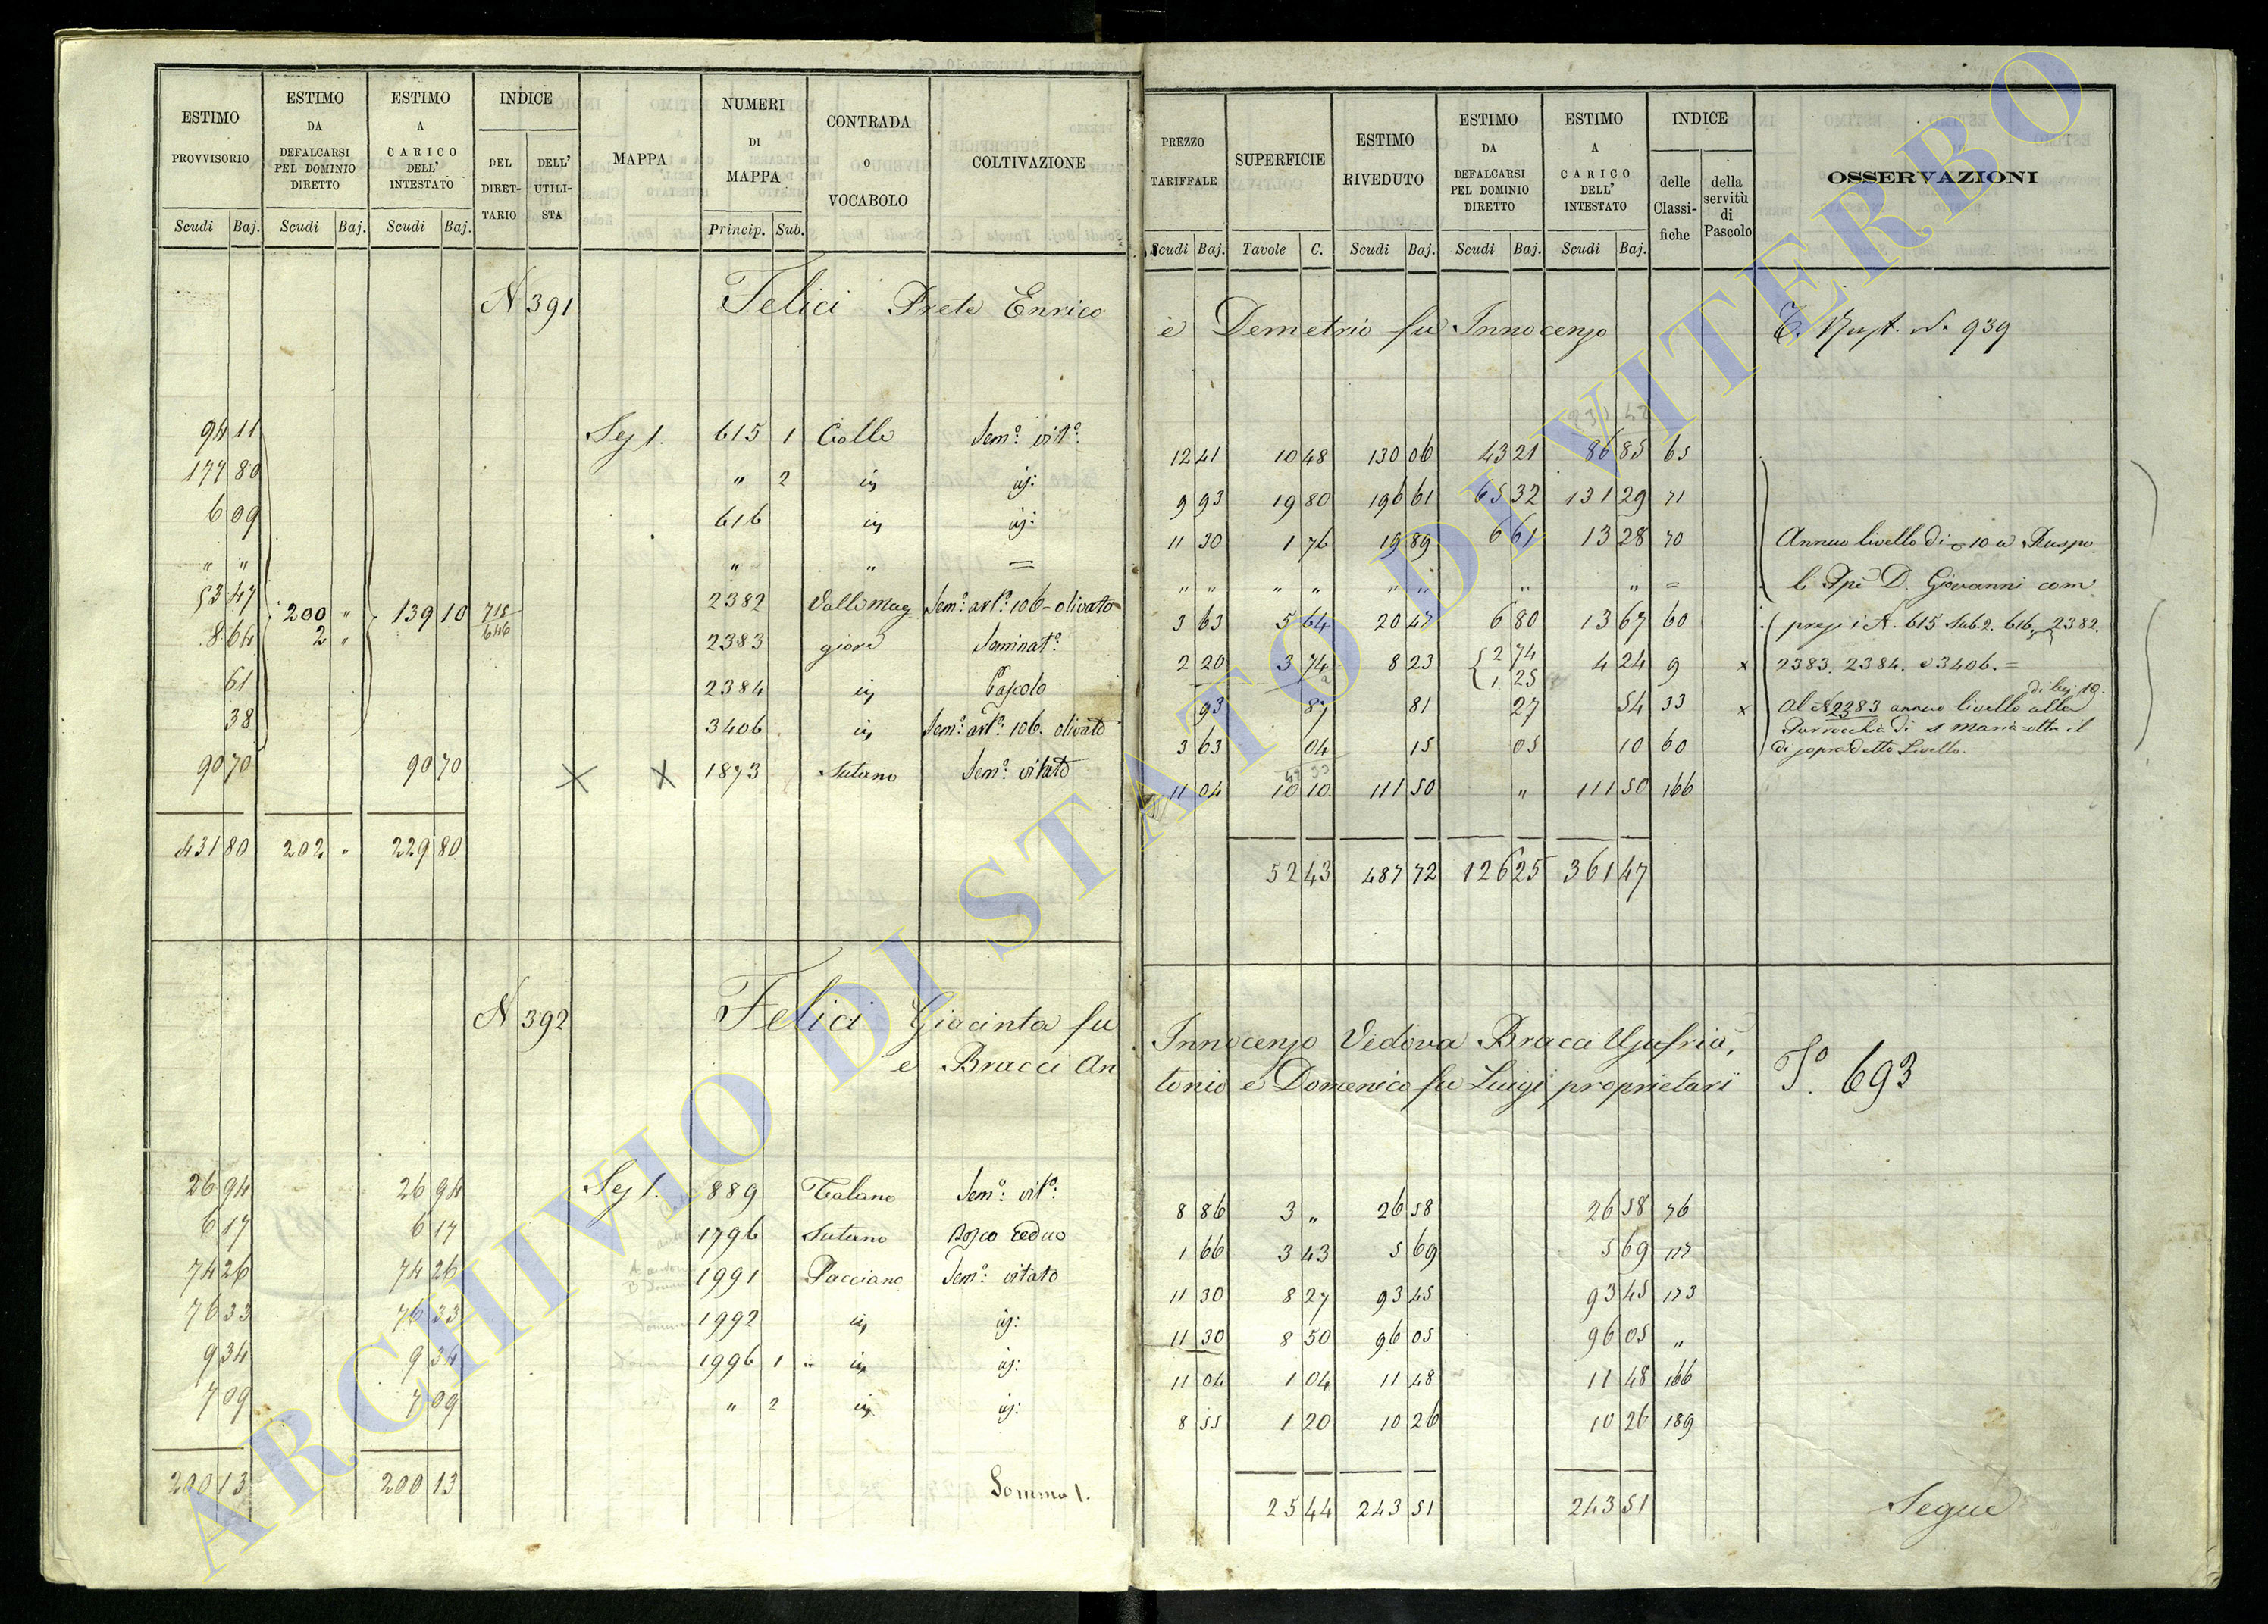 ESTIMO PROVVISORIO | ESTIMO DA DEFALCARSI PEL DOMINIO DIRETTO | ESTIMO A CARICO DELL' INTESTATO | INDICE DEL DIRETTARIO | DELL' UTILISTA | MAPPA | NUMERI DI MAPPA | CONTRADA o VOCABOLO | COLTIVAZIONE
Scudi Baj. | Scudi Baj. | Scudi Baj. | Princip. Sub.
N 391 Felici Prete Enrico
94 11 Sez 1. 615 1 Colle Sem.o vit.o
177 80 " 2 id.
6 09 616
" " " " =
53 47 200 " 139 10 715 2382 Valle Mag Sem.o olivato
8 64 2 " 646 2383 giore Seminat.o
61 2384 Pascolo
38 3406 olivato
90 70 90 70 X X 1873 Sutano Sem.o vitato
431 80 202 " 229 80
N 392 Felici Giacinta fu
e Bracci An
26 94 26 94 Sez 1. 889 Talano Sem.o vit.o
6 17 6 17 1796 Sutano Bosco Ceduo
74 26 74 26 1991 Pacciano Sem.o vitato
76 33 76 33 1992
9 34 9 34 1996 1
7 09 7 09 " 2
200 13 200 13 Somma 1.
PREZZO TARIFFALE | SUPERFICIE | ESTIMO RIVEDUTO | ESTIMO DA DEFALCARSI PEL DOMINIO DIRETTO | ESTIMO A CARICO DELL' INTESTATO | INDICE delle Classifiche | della servitù di Pascolo | OSSERVAZIONI
Scudi Baj. | Tavole C. | Scudi Baj. | Scudi Baj. | Scudi Baj.
e Demetrio fu Innocenzo 939
12 41 10 48 130 06 43 21 86 85 65
9 93 19 80 196 61 65 32 131 29 71
11 30 1 76 19 89 6 61 13 28 70 Annuo livello di 10 a Ruspo
" " " " " " " " = li D. Giovanni com
3 63 5 64 20 47 6 80 13 67 60 presi i N. 615 Sub. 2. 616. 2382.
2 20 3 74 8 23 2 74 4 24 9 x 2383. 2384. e 3406. =
1 25
93 87 81 27 54 33 x Al N 2383 annuo livello alla
Parrocchia di S Maria
3 63 04 15 05 10 60 di sopradetto Livello.
11 04 10 10 111 50 " 111 50 166
52 43 487 72 126 25 361 47
Innocenzo Vedova Bracci
tonio e Domenico fu Luigi proprietari 693
8 86 3 " 26 58 26 58 76
1 66 3 43 5 69 5 69 117
11 30 8 27 93 45 93 45 173
11 30 8 50 96 05 96 05 "
11 04 1 04 11 48 11 48 166
8 55 1 20 10 26 10 26 189
25 44 243 51 243 51 Segue
ARCHIVIO DI STATO DI VITERBO